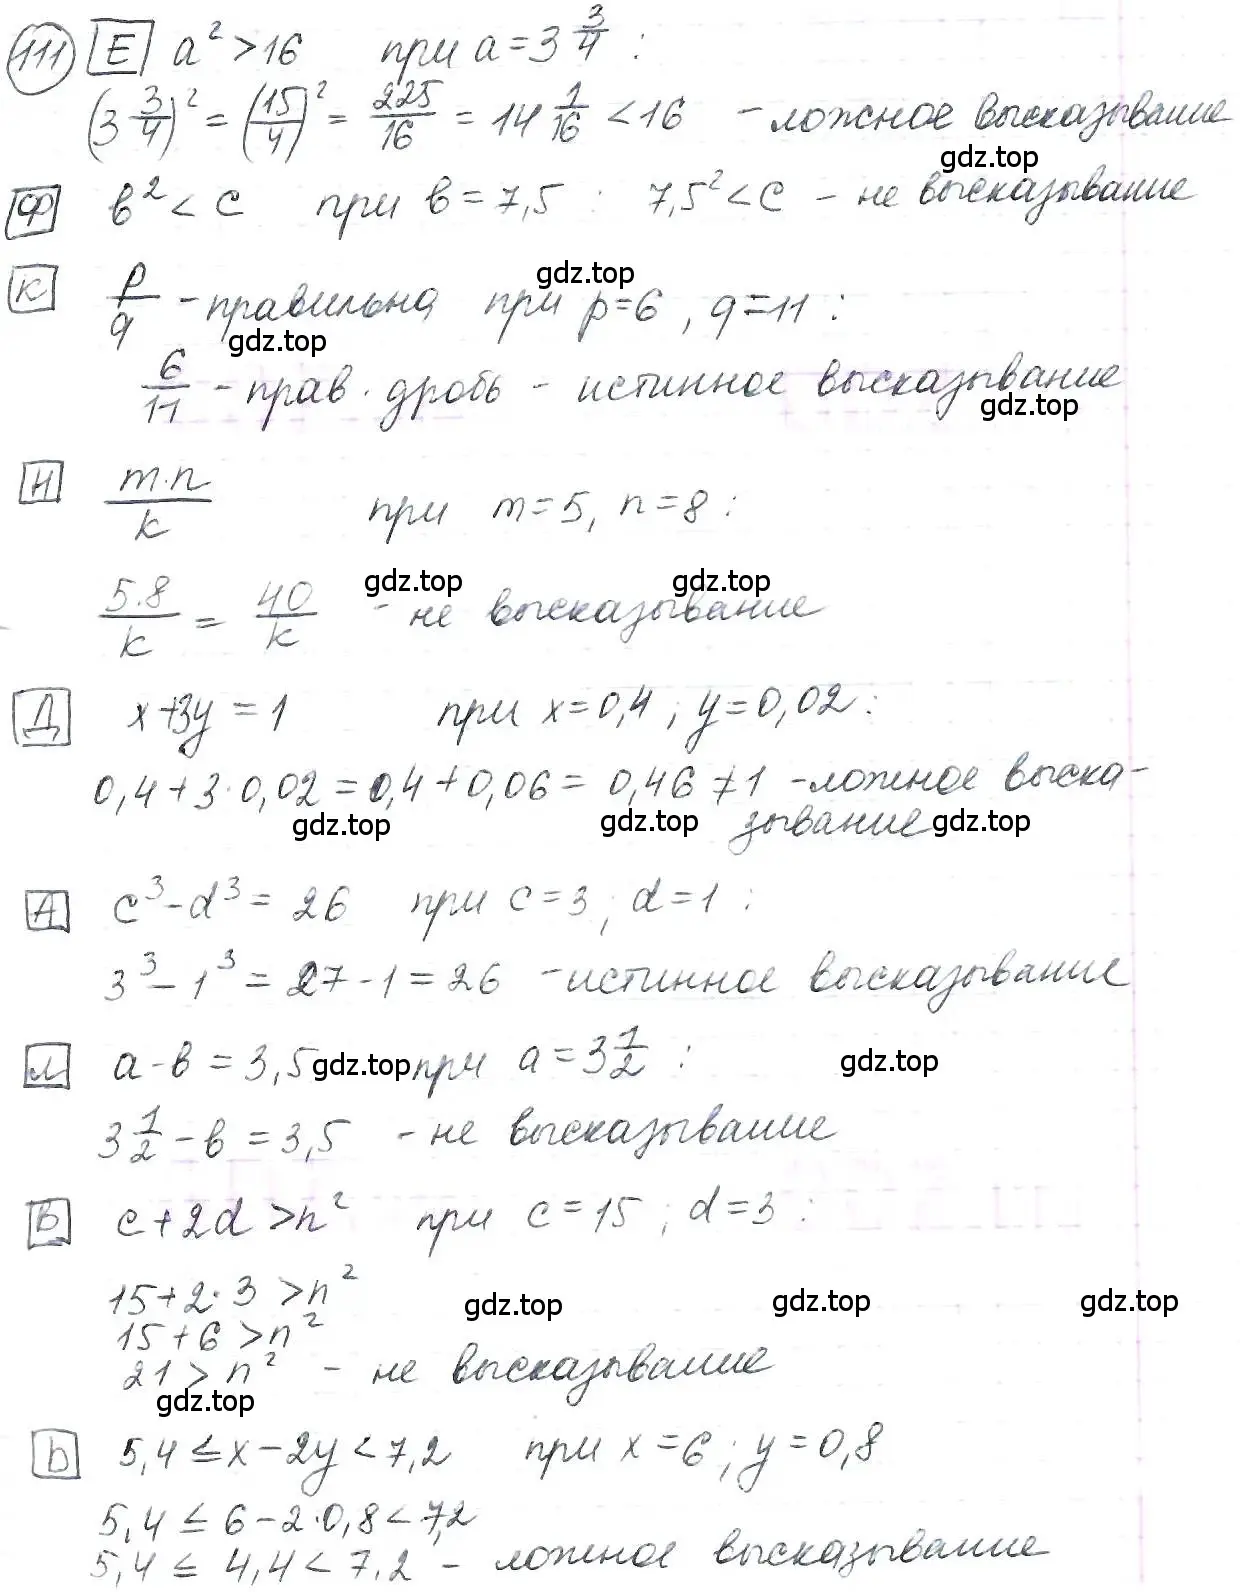 111 Е a² > 16 при a = 3 3/4 :
(3 3/4)² = (15/4)² = 225/16 = 14 1/16 < 16 - ложное высказывание
gdz.top
Ф b² < c при b = 7,5 : 7,5² < c - не высказывание
gdz.top
К p/q - правильна при p=6, q=11 :
gdz.top
6/11 - прав. дробь - истинное высказывание
gdz.top
Н m·n/k при m=5, n=8 :
gdz.top gdz.top
5·8/k = 40/k - не высказывание
Д x+3y = 1 при x=0,4 ; y=0,02 :
0,4+3·0,02 = 0,4+0,06 = 0,46 ≠ 1 - ложное выска-
зывание
gdz.top gdz.top gdz.top
А c³-d³ = 26 при c=3 ; d=1 :
3³-1³ = 27-1 = 26 - истинное высказывание
Л a-b = 3,5 при a = 3 1/2 :
gdz.top gdz.top
3 1/2 - b = 3,5 - не высказывание
В c+2d > n² при c=15 ; d=3 :
15+2·3 > n²
gdz.top gdz.top gdz.top
15+6 > n²
21 > n² - не высказывание
gdz.top
Ь 5,4 ≤ x-2y < 7,2 при x=6 ; y=0,8
5,4 ≤ 6-2·0,8 < 7,2
5,4 ≤ 4,4 < 7,2 - ложное высказывание